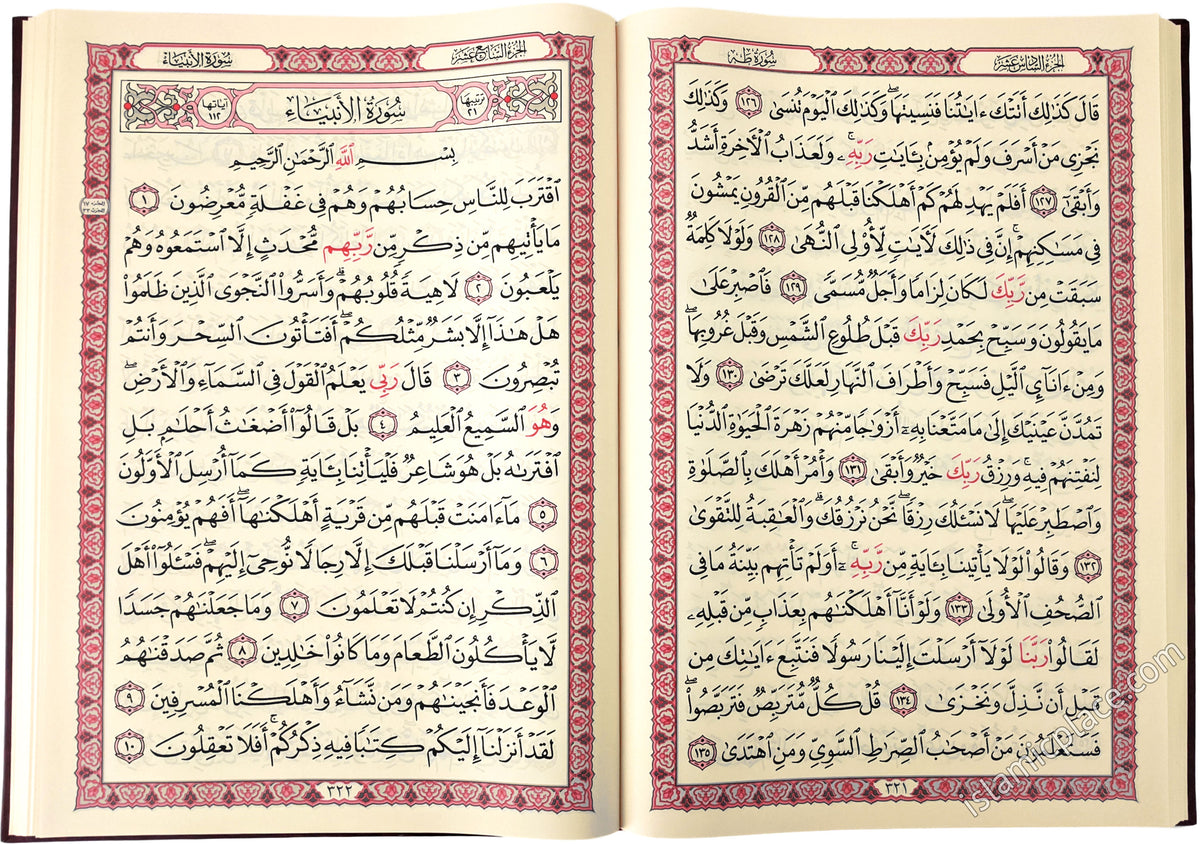 الجزء السادس عشر
سُورَةُ طه
قَالَ كَذَٰلِكَ أَتَتْكَ ءَايَٰتُنَا فَنَسِيتَهَاۖ وَكَذَٰلِكَ ٱلْيَوْمَ تُنسَىٰ ١٢٦ وَكَذَٰلِكَ
نَجْزِى مَنْ أَسْرَفَ وَلَمْ يُؤْمِنۢ بِـَٔايَٰتِ رَبِّهِۦۚ وَلَعَذَابُ ٱلْأَخِرَةِ أَشَدُّ
وَأَبْقَىٰٓ ١٢٧ أَفَلَمْ يَهْدِ لَهُمْ كَمْ أَهْلَكْنَا قَبْلَهُم مِّنَ ٱلْقُرُونِ يَمْشُونَ
فِى مَسَٰكِنِهِمْۗ إِنَّ فِى ذَٰلِكَ لَأَيَٰتٍ لِّأُو۟لِى ٱلنُّهَىٰ ١٢٨ وَلَوْلَا كَلِمَةٌ
سَبَقَتْ مِن رَّبِّكَ لَكَانَ لِزَامًا وَأَجَلٌ مُّسَمًّى ١٢٩ فَٱصْبِرْ عَلَىٰ
مَا يَقُولُونَ وَسَبِّحْ بِحَمْدِ رَبِّكَ قَبْلَ طُلُوعِ ٱلشَّمْسِ وَقَبْلَ غُرُوبِهَاۖ
وَمِنْ ءَانَآئِ ٱلَّيْلِ فَسَبِّحْ وَأَطْرَافَ ٱلنَّهَارِ لَعَلَّكَ تَرْضَىٰ ١٣٠ وَلَا
تَمُدَّنَّ عَيْنَيْكَ إِلَىٰ مَا مَتَّعْنَا بِهِۦٓ أَزْوَٰجًا مِّنْهُمْ زَهْرَةَ ٱلْحَيَوٰةِ ٱلدُّنْيَا
لِنَفْتِنَهُمْ فِيهِۚ وَرِزْقُ رَبِّكَ خَيْرٌ وَأَبْقَىٰ ١٣١ وَأْمُرْ أَهْلَكَ بِٱلصَّلَوٰةِ
وَٱصْطَبِرْ عَلَيْهَاۖ لَا نَسْـَٔلُكَ رِزْقًاۖ نَّحْنُ نَرْزُقُكَۗ وَٱلْعَٰقِبَةُ لِلتَّقْوَىٰ
١٣٢ وَقَالُوا۟ لَوْلَا يَأْتِينَا بِـَٔايَةٍ مِّن رَّبِّهِۦٓۚ أَوَلَمْ تَأْتِهِم بَيِّنَةُ مَا فِى
ٱلصُّحُفِ ٱلْأُولَىٰ ١٣٣ وَلَوْ أَنَّآ أَهْلَكْنَٰهُم بِعَذَابٍ مِّن قَبْلِهِۦ
لَقَالُوا۟ رَبَّنَا لَوْلَآ أَرْسَلْتَ إِلَيْنَا رَسُولًا فَنَتَّبِعَ ءَايَٰتِكَ مِن
قَبْلِ أَن نَّذِلَّ وَنَخْزَىٰ ١٣٤ قُلْ كُلٌّ مُّتَرَبِّصٌ فَتَرَبَّصُوا۟ۖ
فَسَتَعْلَمُونَ مَنْ أَصْحَٰبُ ٱلصِّرَٰطِ ٱلسَّوِىِّ وَمَنِ ٱهْتَدَىٰ ١٣٥
٣٢١
الجزء السابع عشر
سُورَةُ الأَنبيَاء
ترتيبها ٢١
سُورَةُ الأَنبيَاء
آياتها ١١٢
بِسْمِ ٱللَّهِ ٱلرَّحْمَٰنِ ٱلرَّحِيمِ
ٱقْتَرَبَ لِلنَّاسِ حِسَابُهُمْ وَهُمْ فِى غَفْلَةٍ مُّعْرِضُونَ ١
مَا يَأْتِيهِم مِّن ذِكْرٍ مِّن رَّبِّهِم مُّحْدَثٍ إِلَّا ٱسْتَمَعُوهُ وَهُمْ
يَلْعَبُونَ ٢ لَاهِيَةً قُلُوبُهُمْۗ وَأَسَرُّوا۟ ٱلنَّجْوَى ٱلَّذِينَ ظَلَمُوا۟
هَلْ هَٰذَآ إِلَّا بَشَرٌ مِّثْلُكُمْۖ أَفَتَأْتُونَ ٱلسِّحْرَ وَأَنتُمْ
تُبْصِرُونَ ٣ قَالَ رَبِّى يَعْلَمُ ٱلْقَوْلَ فِى ٱلسَّمَآءِ وَٱلْأَرْضِۖ
وَهُوَ ٱلسَّمِيعُ ٱلْعَلِيمُ ٤ بَلْ قَالُوٓا۟ أَضْغَٰثُ أَحْلَٰمٍۭ بَلِ
ٱفْتَرَىٰهُ بَلْ هُوَ شَاعِرٌ فَلْيَأْتِنَا بِـَٔايَةٍ كَمَآ أُرْسِلَ ٱلْأَوَّلُونَ
٥ مَآ ءَامَنَتْ قَبْلَهُم مِّن قَرْيَةٍ أَهْلَكْنَٰهَآۖ أَفَهُمْ يُؤْمِنُونَ
٦ وَمَآ أَرْسَلْنَا قَبْلَكَ إِلَّا رِجَالًا نُّوحِىٓ إِلَيْهِمْۖ فَسْـَٔلُوٓا۟ أَهْلَ
ٱلذِّكْرِ إِن كُنتُمْ لَا تَعْلَمُونَ ٧ وَمَا جَعَلْنَٰهُمْ جَسَدًا
لَّا يَأْكُلُونَ ٱلطَّعَامَ وَمَا كَانُوا۟ خَٰلِدِينَ ٨ ثُمَّ صَدَقْنَٰهُمُ
ٱلْوَعْدَ فَأَنجَيْنَٰهُمْ وَمَن نَّشَآءُ وَأَهْلَكْنَا ٱلْمُسْرِفِينَ ٩
لَقَدْ أَنزَلْنَآ إِلَيْكُمْ كِتَٰبًا فِيهِ ذِكْرُكُمْۚ أَفَلَا تَعْقِلُونَ ١٠
٣٢٢
Islamicplace.com